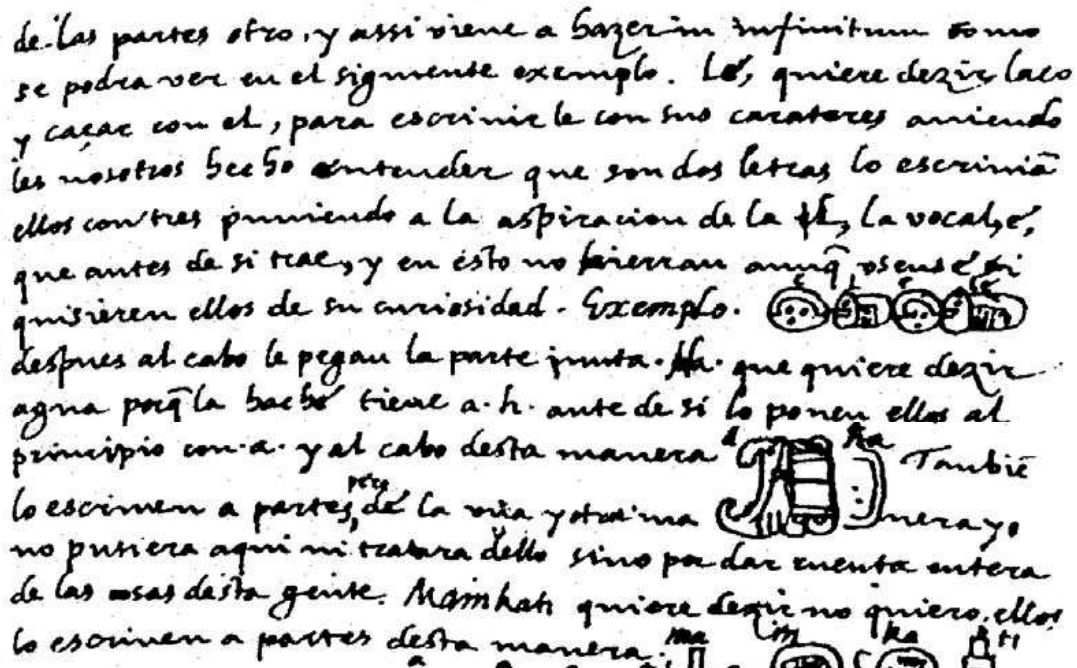 de las partes otro, y assi viene a hazer in infinitum como
se podra ver en el siguiente exemplo. Lé, quiere dezir laço
y caçar con el, para escrivirle con sus carateres aviendo
les nosotros hecho entender que son dos letras lo escrivian̄
ellos con tres puniendo a la aspiracion de la l, la vocal, é,
que antes de si trae, y en ésto no hierran aunq̄ usense si
quisieren ellos de su curiosidad. Exemplo. e l e le
despues al cabo le pegan la parte junta. Ha. que quiere dezir
agua porq̄ la haché tiene a. h. ante de si lo ponen ellos al
principio con. a. y al cabo desta manera a ha Tambiē
lo escriven a partes, pero de la una y otra ma nera yo
no pusiera aqui ni tratara dello sino por dar cuenta entera
de las cosas desta gente. Mainkati quiere dezir no quiero, ellos
lo escriven a partes desta manera. ma i n ka ti